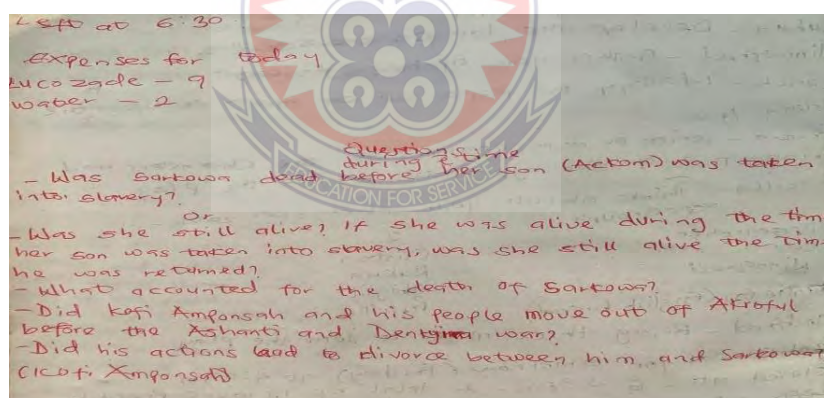 Left at 6:30
Expenses for today
Lucozade - 9
water - 2
Questions time
- Was Sarkowa dead during before her son (Ackom) was taken
into slavery?
Or
- Was she still alive? If she was alive during the tim
her son was taken into slavery, was she still alive the tim
he was returned?
- What accounted for the death of Sarkowa?
- Did Kofi Amponsah and his people move out of Akroful
before the Ashanti and Denkyira war?
- Did his actions lead to divorce between him and Sarkowa?
(Kofi Amponsah)
EDUCATION FOR SERVICE